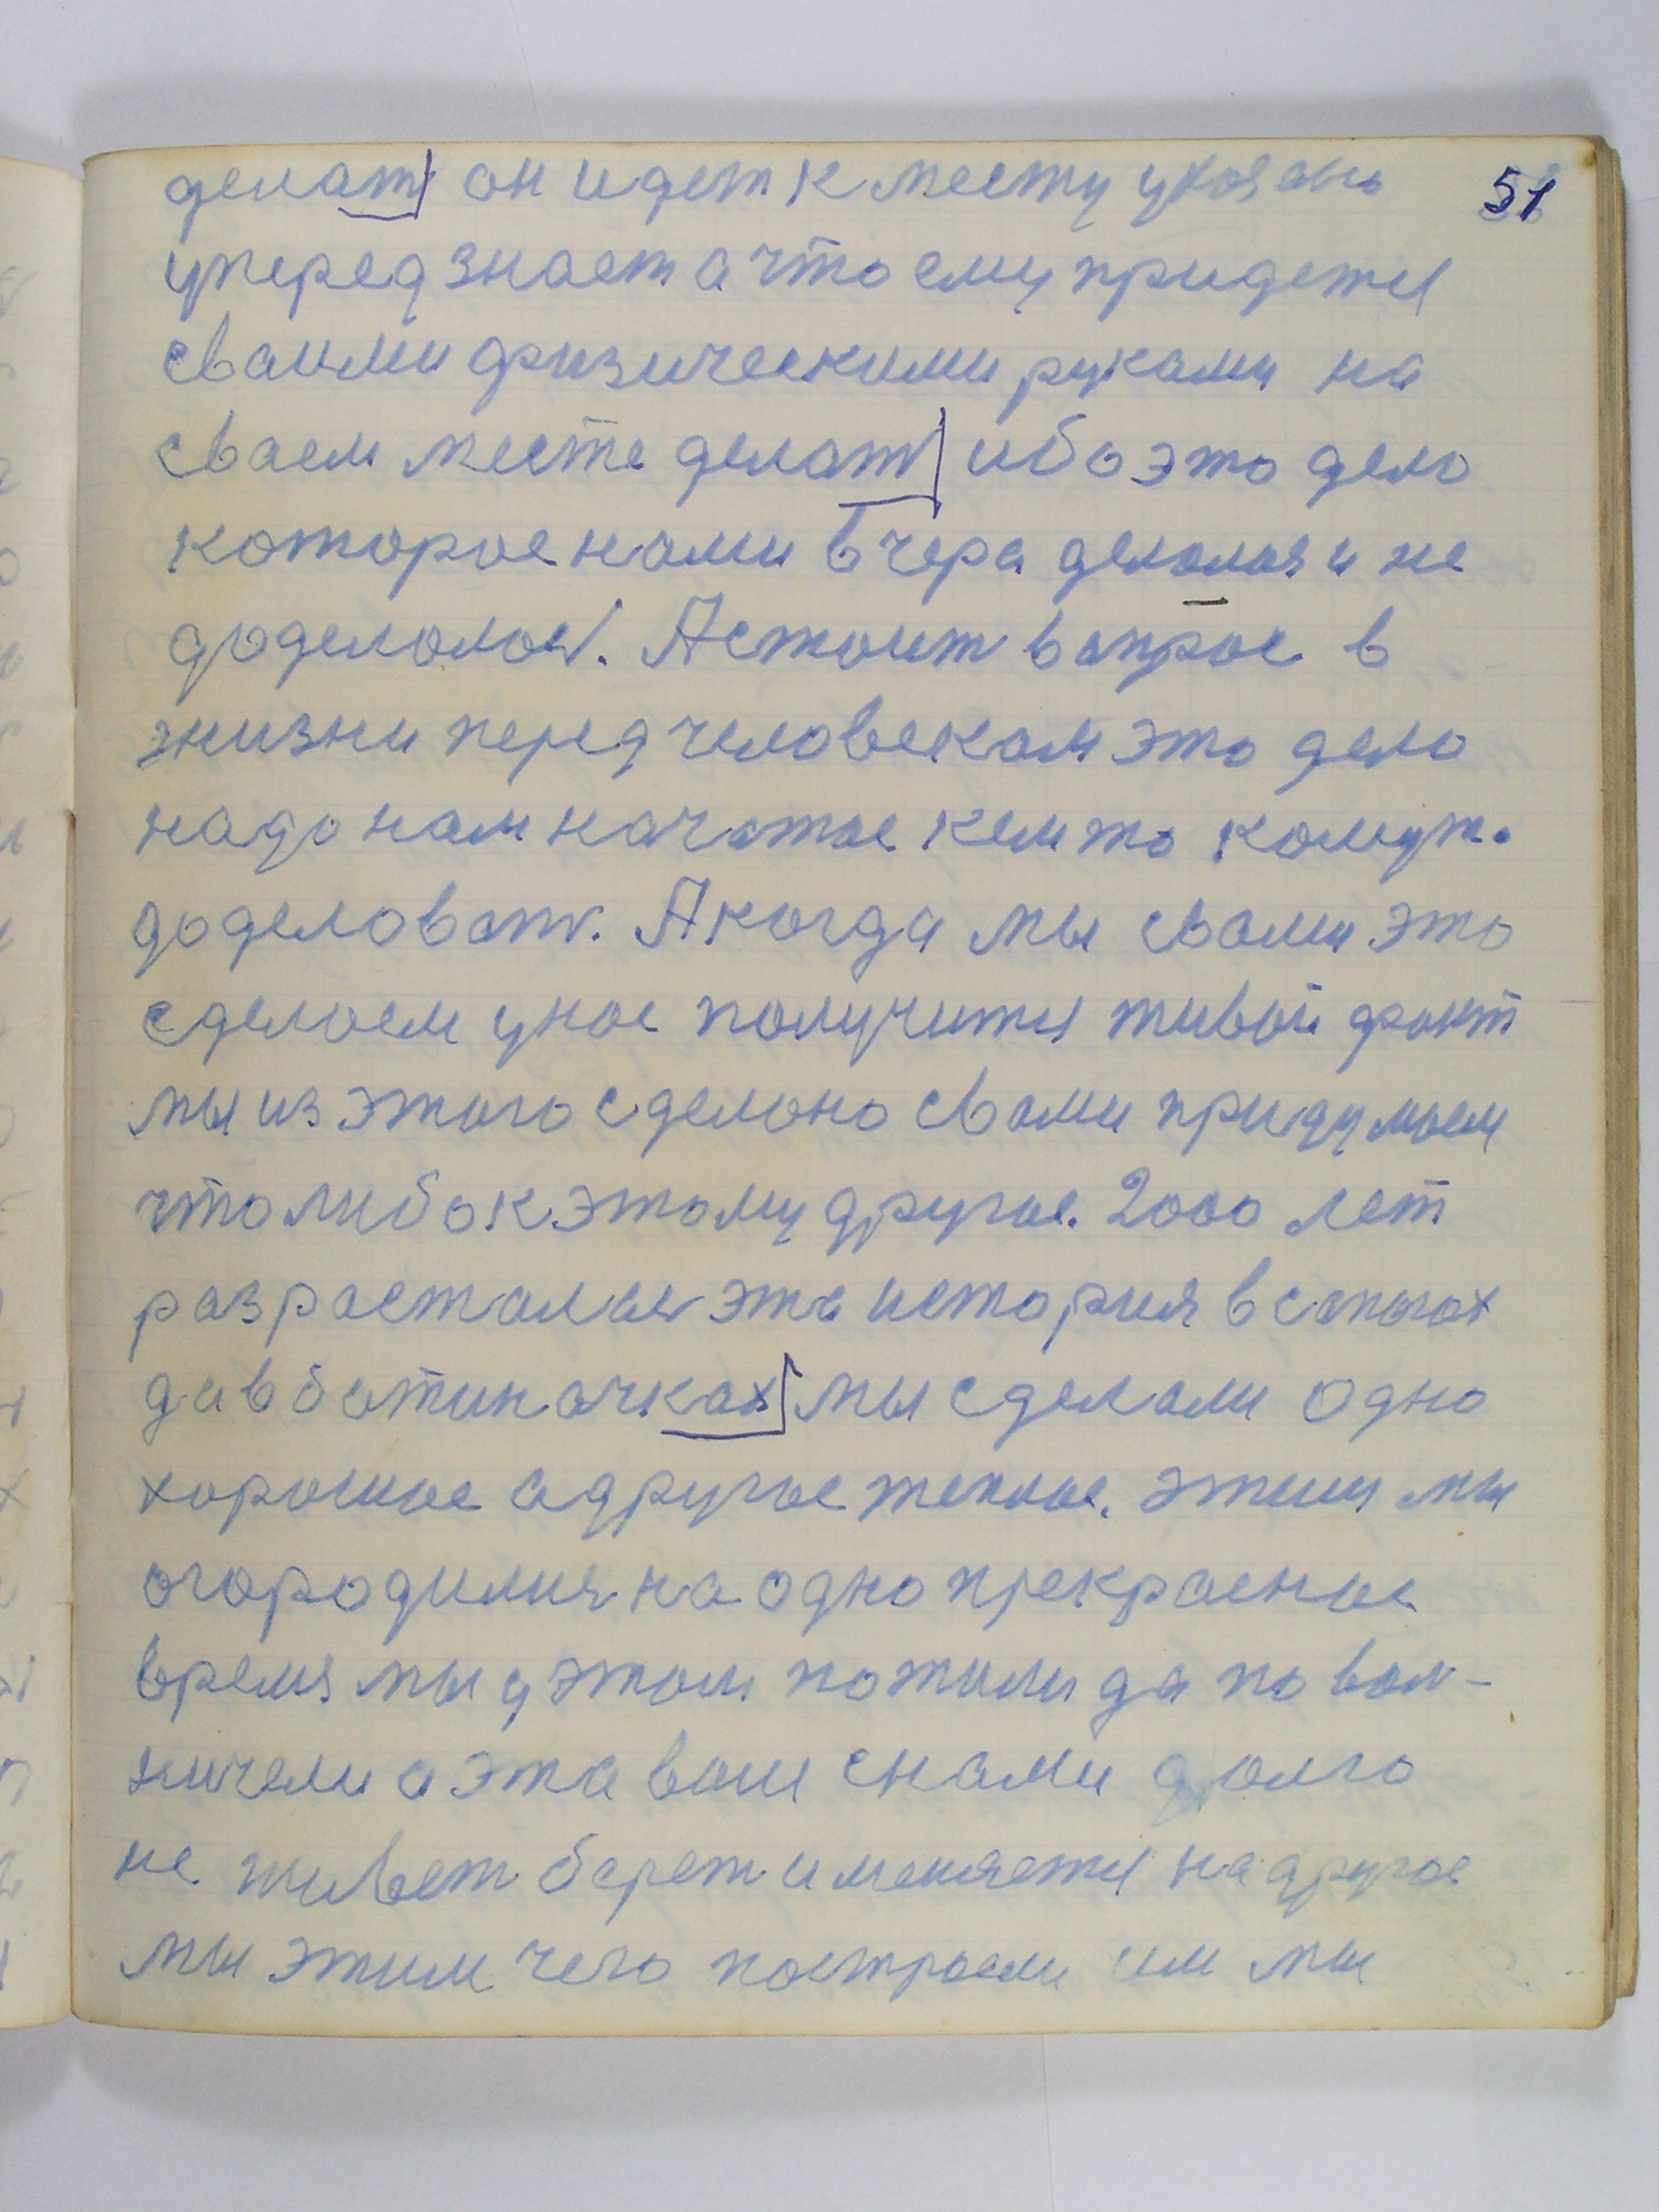 51
делат он идет к месту указано
уперед знает а что ему придетця
сваими физическими руками на
сваем месте делат ибо это дело
которое нами вчера делалос и не
доделолос. А стоит вапрос в
жизни перед человекам это дело
надо нам начатое кем то кому то
доделоват. А когда мы свами это
сделоем у нос получитця живой факт
мы из этого сделоно свами придумоем
что либо к этому другое. 2000 лет
разросталас эта история в сапогах
да в ботиночках мы сделали одно
хорошое а другое теплое. этим мы
огородилис на одно прекрасное
время мы у этом пожили да по вел-
ничели а эта вош снами долго
не живет берет и меняетця на другое
мы этим чего построели им мы